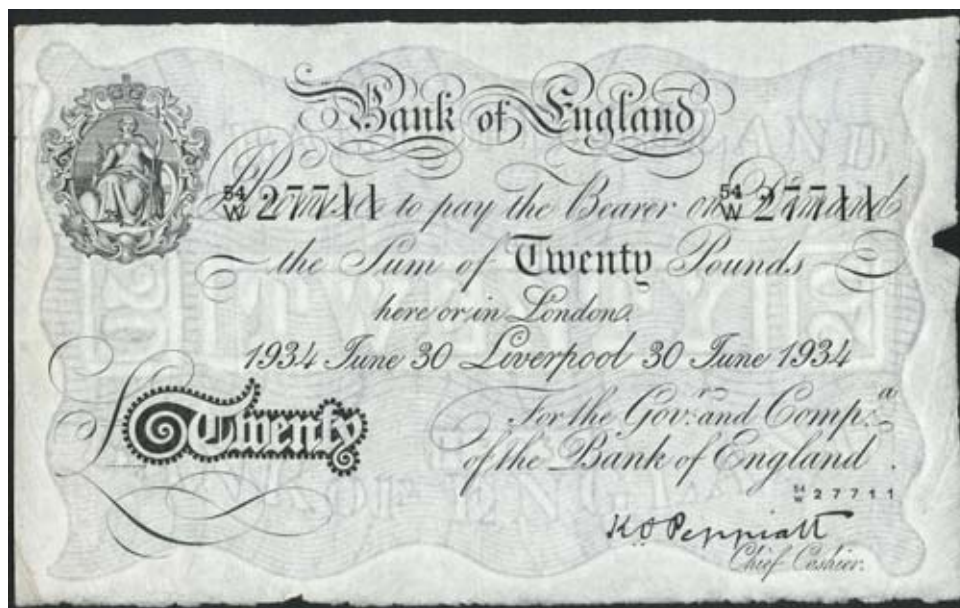 Bank of England
54/W 27711 54/W 27711
I Promise to pay the Bearer on Demand
the Sum of Twenty Pounds
here or in London.
1934 June 30 Liverpool 30 June 1934
£ Twenty
For the Gov.r and Comp.a
of the Bank of England.
54/W 27711
K O Peppiatt
Chief Cashier.